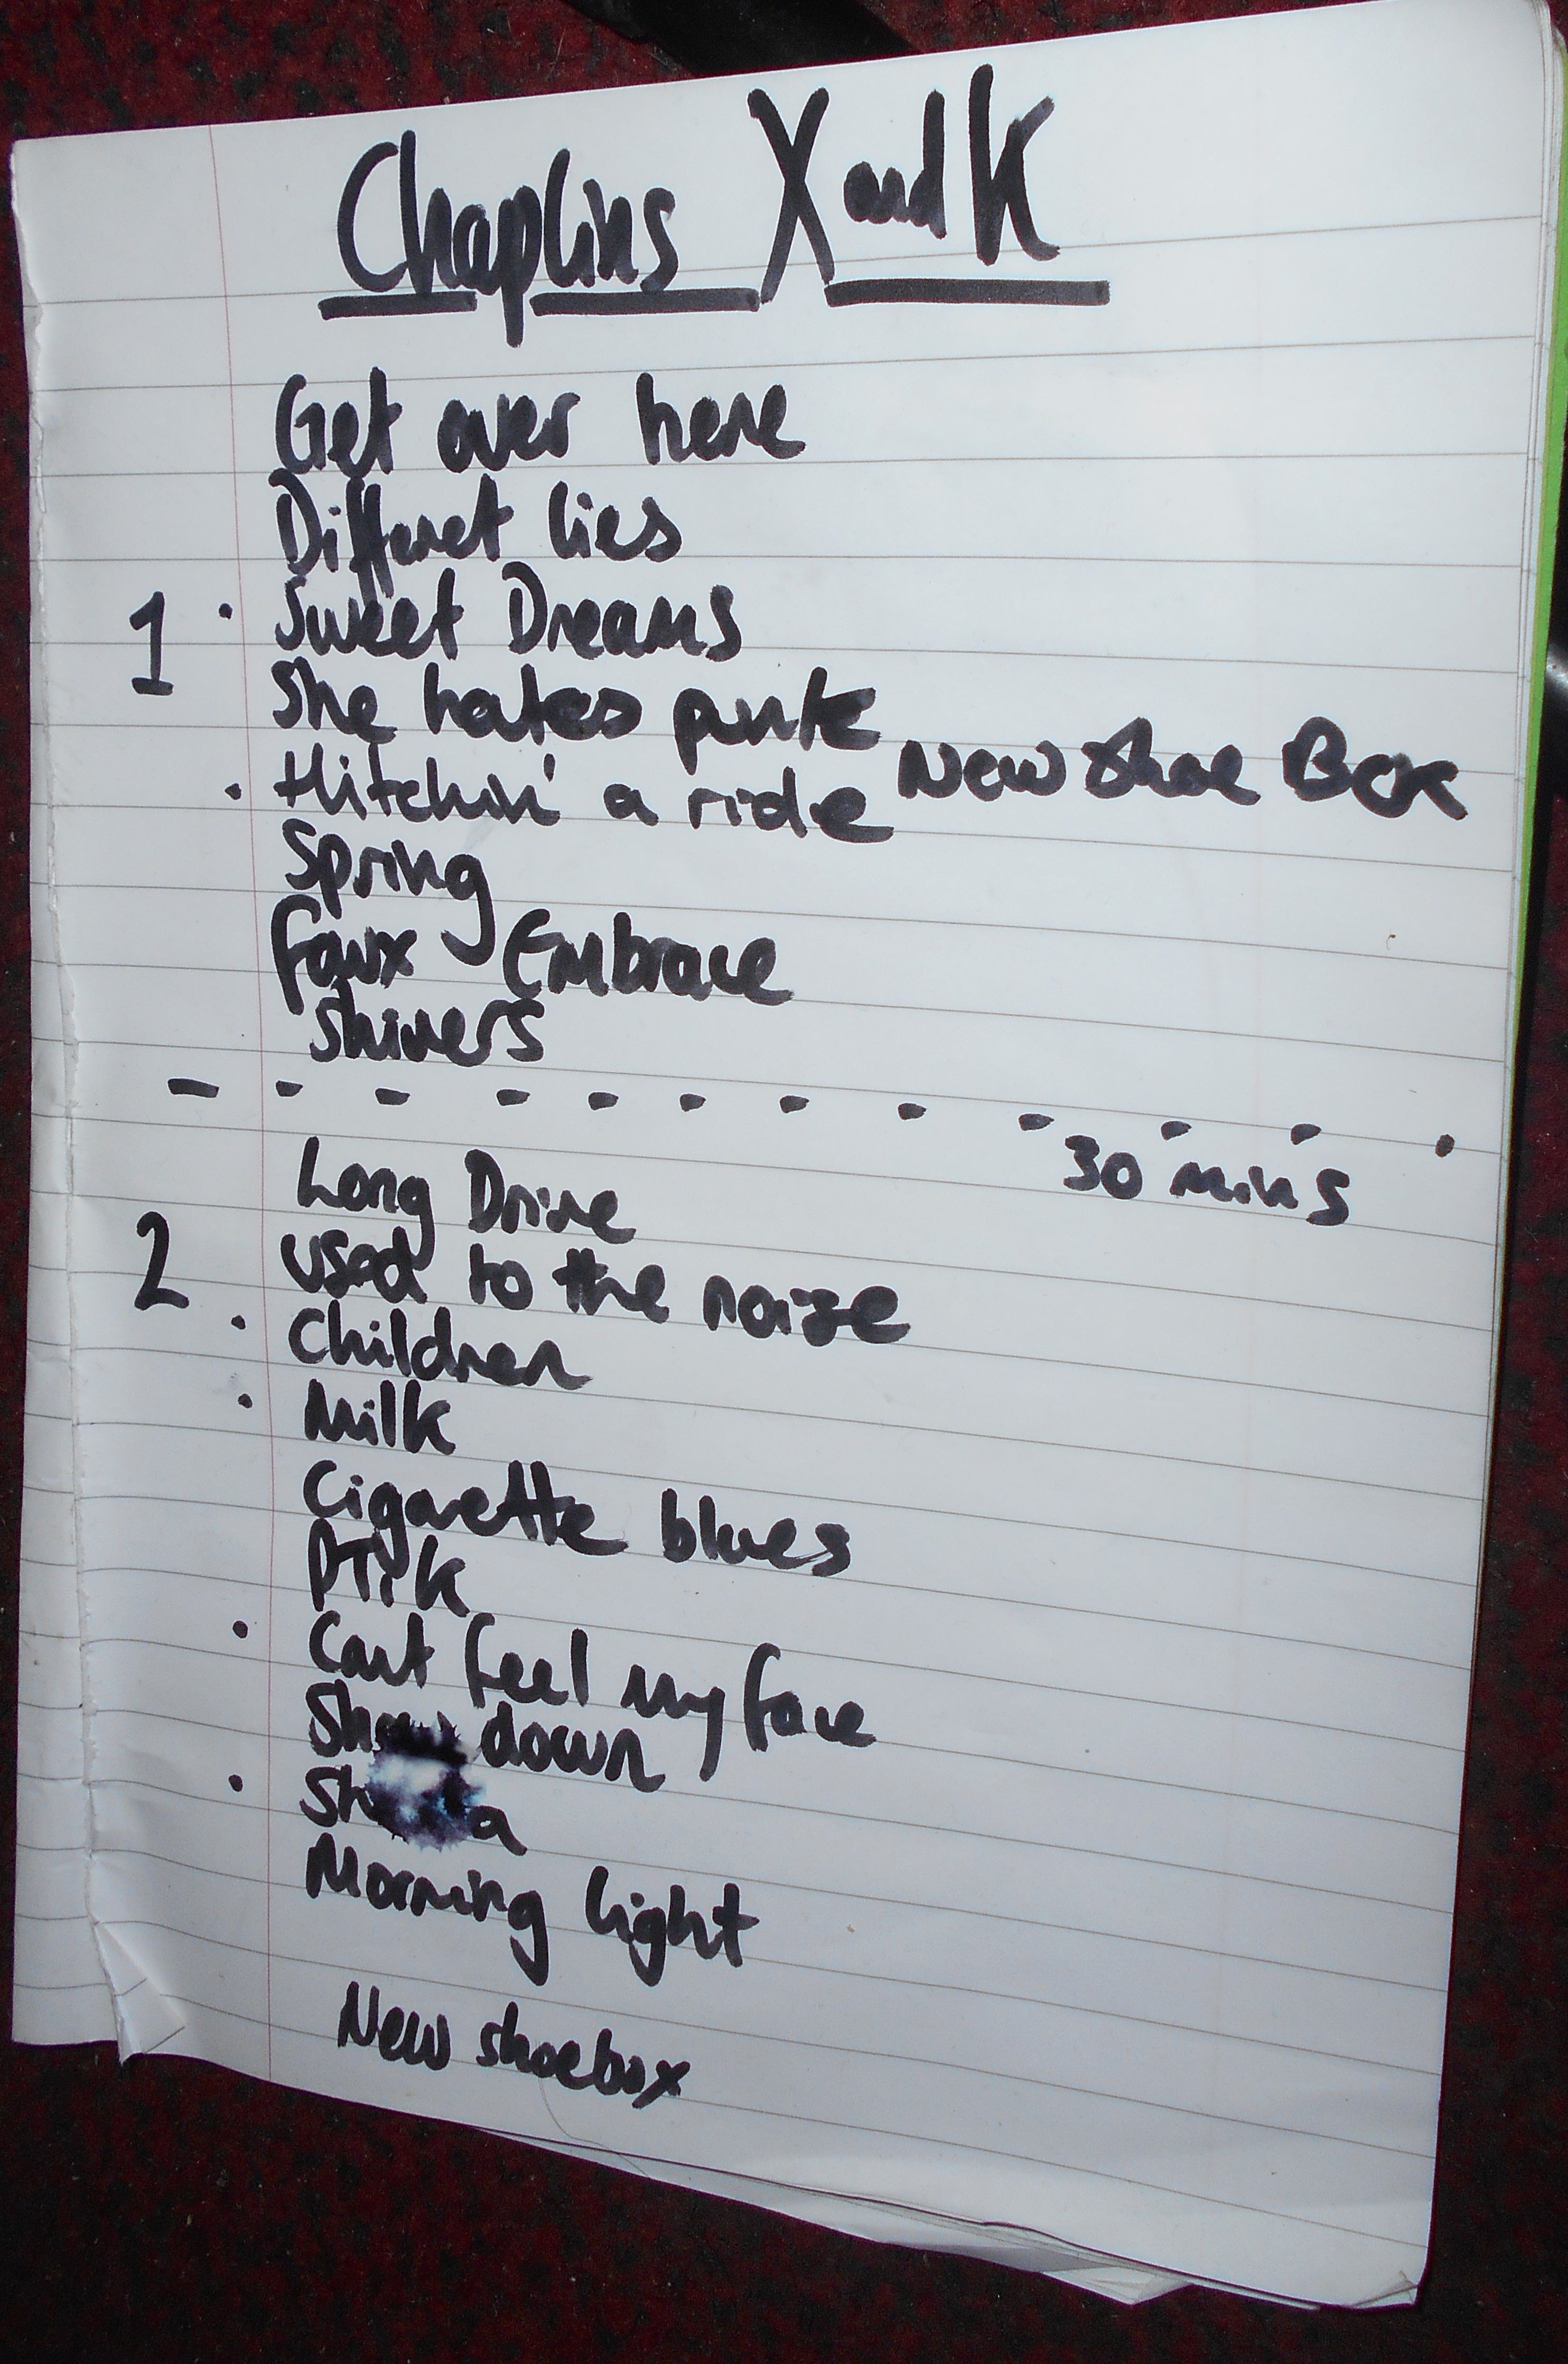 Chaplins X and K
Get over here
Differet lies
1 · Sweet Dreams
She hates punk
New Shoe Box
· Hitchin' a ride
Spring
Faux Embrace
Shivers
- - - - - - - - - - - -
30 mins
Long Drive
2 used to the noize
· Children
· Milk
Cigarette blues
· Cant feel my face
down
Morning light
New shoebox